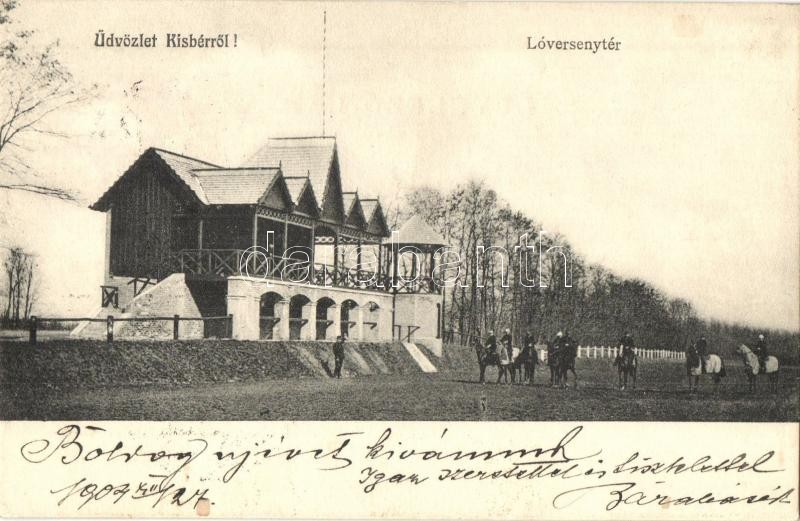 Üdvözlet Kisbérről!
Lóversenytér
darabanth
Boldog ujévet kivánunk
Igaz szeretettel és tisztelettel
1904 XII/27.